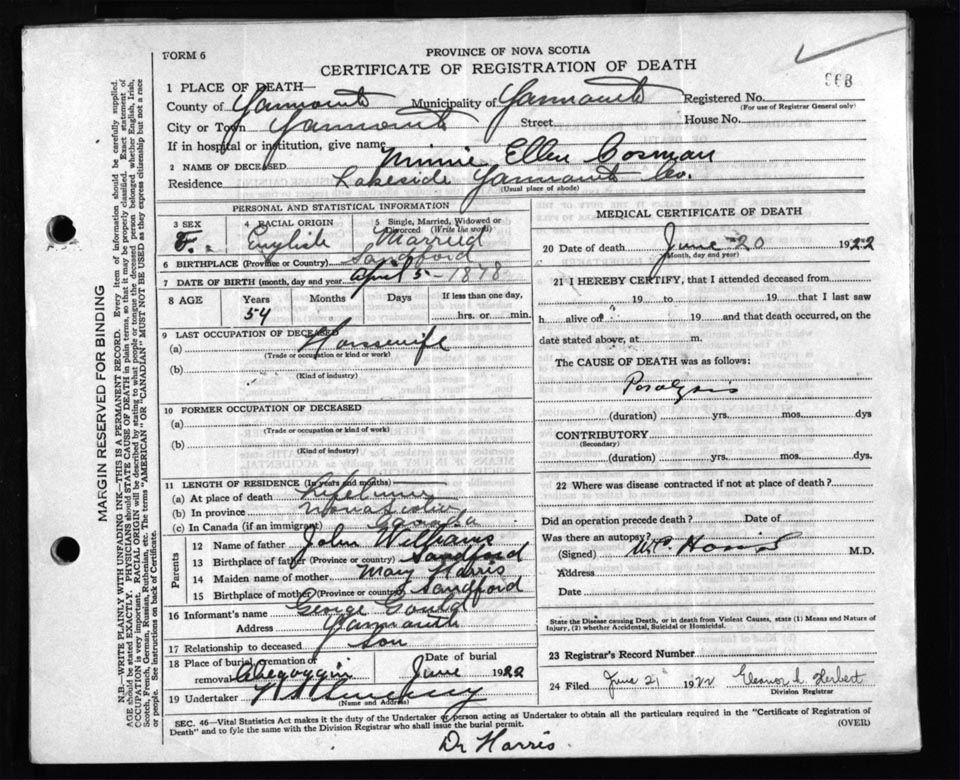 FORM 6
PROVINCE OF NOVA SCOTIA
CERTIFICATE OF REGISTRATION OF DEATH
1 PLACE OF DEATH—
County of Yarmouth Municipality of Yarmouth Registered No.
(For use of Registrar General only)
City or Town Yarmouth Street House No.
If in hospital or institution, give name
2 NAME OF DECEASED Minnie Ellen Cosman
Residence Lakeside Yarmouth Co.
(Usual place of abode)
PERSONAL AND STATISTICAL INFORMATION
3 SEX F. 4 RACIAL ORIGIN English 5 Single, Married, Widowed or Divorced (Write the word) Married
6 BIRTHPLACE (Province or Country) Sandford
7 DATE OF BIRTH (month, day and year) April 5 - 1878
8 AGE Years 54 Months Days If less than one day, hrs. or min.
9 LAST OCCUPATION OF DECEASED
(a) Housewife
(Trade or occupation or kind or work)
(b)
(Kind of industry)
10 FORMER OCCUPATION OF DECEASED
(a)
(Trade or occupation or kind of work)
(b)
(Kind of industry)
11 LENGTH OF RESIDENCE (In years and months)
(a) At place of death Lifetime
(b) In province Nova Scotia
(c) In Canada (if an immigrant) Canada
Parents
12 Name of father John Williams
13 Birthplace of father (Province or country) Sandford
14 Maiden name of mother Mary Harris
15 Birthplace of mother (Province or country) Sandford
16 Informant's name George Gould
Address Yarmouth
17 Relationship to deceased Son
18 Place of burial, cremation or removal Chegoggin Date of burial June 1922
19 Undertaker
(Name and Address)
MEDICAL CERTIFICATE OF DEATH
20 Date of death June 20 1922
(Month, day and year)
21 I HEREBY CERTIFY, that I attended deceased from
19 to 19 that I last saw
h alive on ? 19 and that death occurred, on the
date stated above, at m.
The CAUSE OF DEATH was as follows:
Paralysis
(duration) yrs. mos. dys
CONTRIBUTORY
(Secondary)
(duration) yrs. mos. dys.
22 Where was disease contracted if not at place of death?
Did an operation precede death? Date of
Was there an autopsy?
(Signed) M.D.
Address
Date
State the Disease causing Death, or in death from Violent Causes, state (1) Means and Nature of Injury, (2) whether Accidental, Suicidal or Homicidal.
23 Registrar's Record Number
24 Filed June 21 1922 Eleanor L. Herbert
Division Registrar
SEC. 46—Vital Statistics Act makes it the duty of the Undertaker or person acting as Undertaker to obtain all the particulars required in the "Certificate of Registration of
Death" and to fyle the same with the Division Registrar who shall issue the burial permit.
(OVER)
Dr Harris.
MARGIN RESERVED FOR BINDING
N.B.—WRITE PLAINLY WITH UNFADING INK—THIS IS A PERMANENT RECORD. Every item of information should be carefully supplied.
AGE should be stated EXACTLY. PHYSICIANS should STATE CAUSE OF DEATH in plain terms, so that it may be properly classified. Exact statement of
OCCUPATION is very important. RACIAL ORIGIN will be described by stating to what people or tongue the deceased person belonged whether English, Irish,
Scotch, French, German, Russian, Ruthenian, etc. The terms "AMERICAN" OR "CANADIAN" MUST NOT BE USED as they express citizenship but not a race
or people. See instructions on back of Certificate.